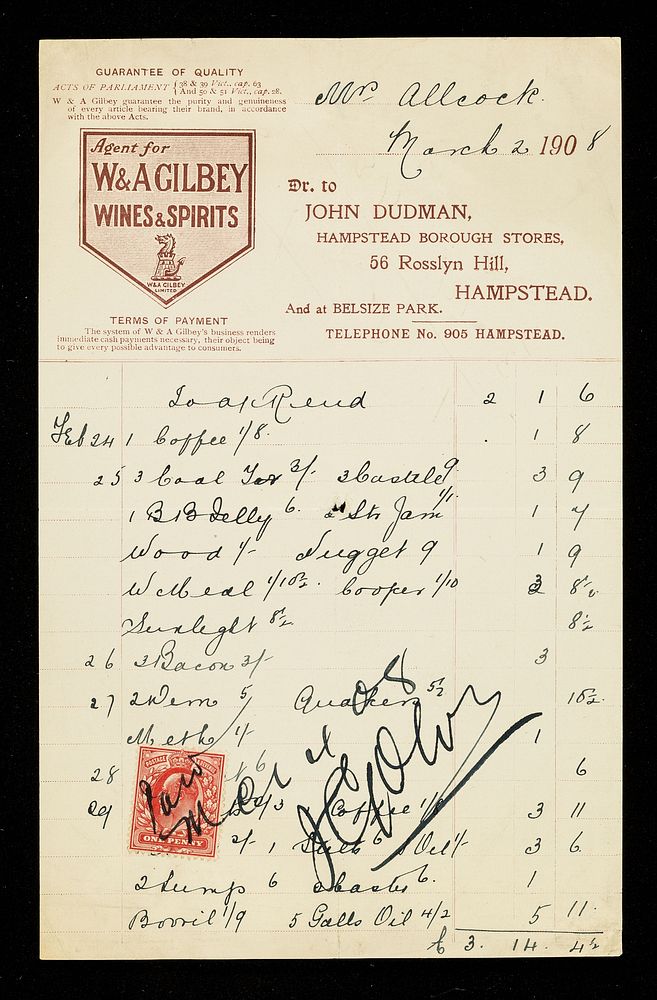 GUARANTEE OF QUALITY
ACTS OF PARLIAMENT { 38 & 39 Vict., cap. 63
And 50 & 51 Vict., cap. 28.
W & A Gilbey guarantee the purity and genuineness
of every article bearing their brand, in accordance
with the above Acts.
Agent for
W&A GILBEY
WINES & SPIRITS
W&A GILBEY
LIMITED
TERMS OF PAYMENT
The system of W & A Gilbey's business renders
immediate cash payments necessary, their object being
to give every possible advantage to consumers.
Mrs Allcock.
March 2 1908
Dr. to
JOHN DUDMAN,
HAMPSTEAD BOROUGH STORES,
56 Rosslyn Hill,
HAMPSTEAD.
And at BELSIZE PARK.
TELEPHONE No. 905 HAMPSTEAD.
To a/c Rend 2 1 6
Feb 24 1 Coffee 1/8 . 1 8
25 3 Coal Tar 3/- 3 Castile 9 3 9
1 BB Jelly 6 Str Jam 1/1 1 7
Wood 1/- Nugget 9 1 9
W Meal 1/10½ Cooper 1/10 3 8½
Sunlight 8½ 8½
26 3 Bacon 3/- 3
27 2 Dem 5 Quakers 5½ 10½
Meth 1/- 1
28 6 6
29 Coffee 1/8 3 11
2/- 1 Salt 6 Oil 1/- 3 6
2 Lump 6 2 Castor 6 1
Bovril 1/9 5 Galls Oil 4/2 5 11
£ 3. 14. 4½
POSTAGE
ONE PENNY
Paid
08